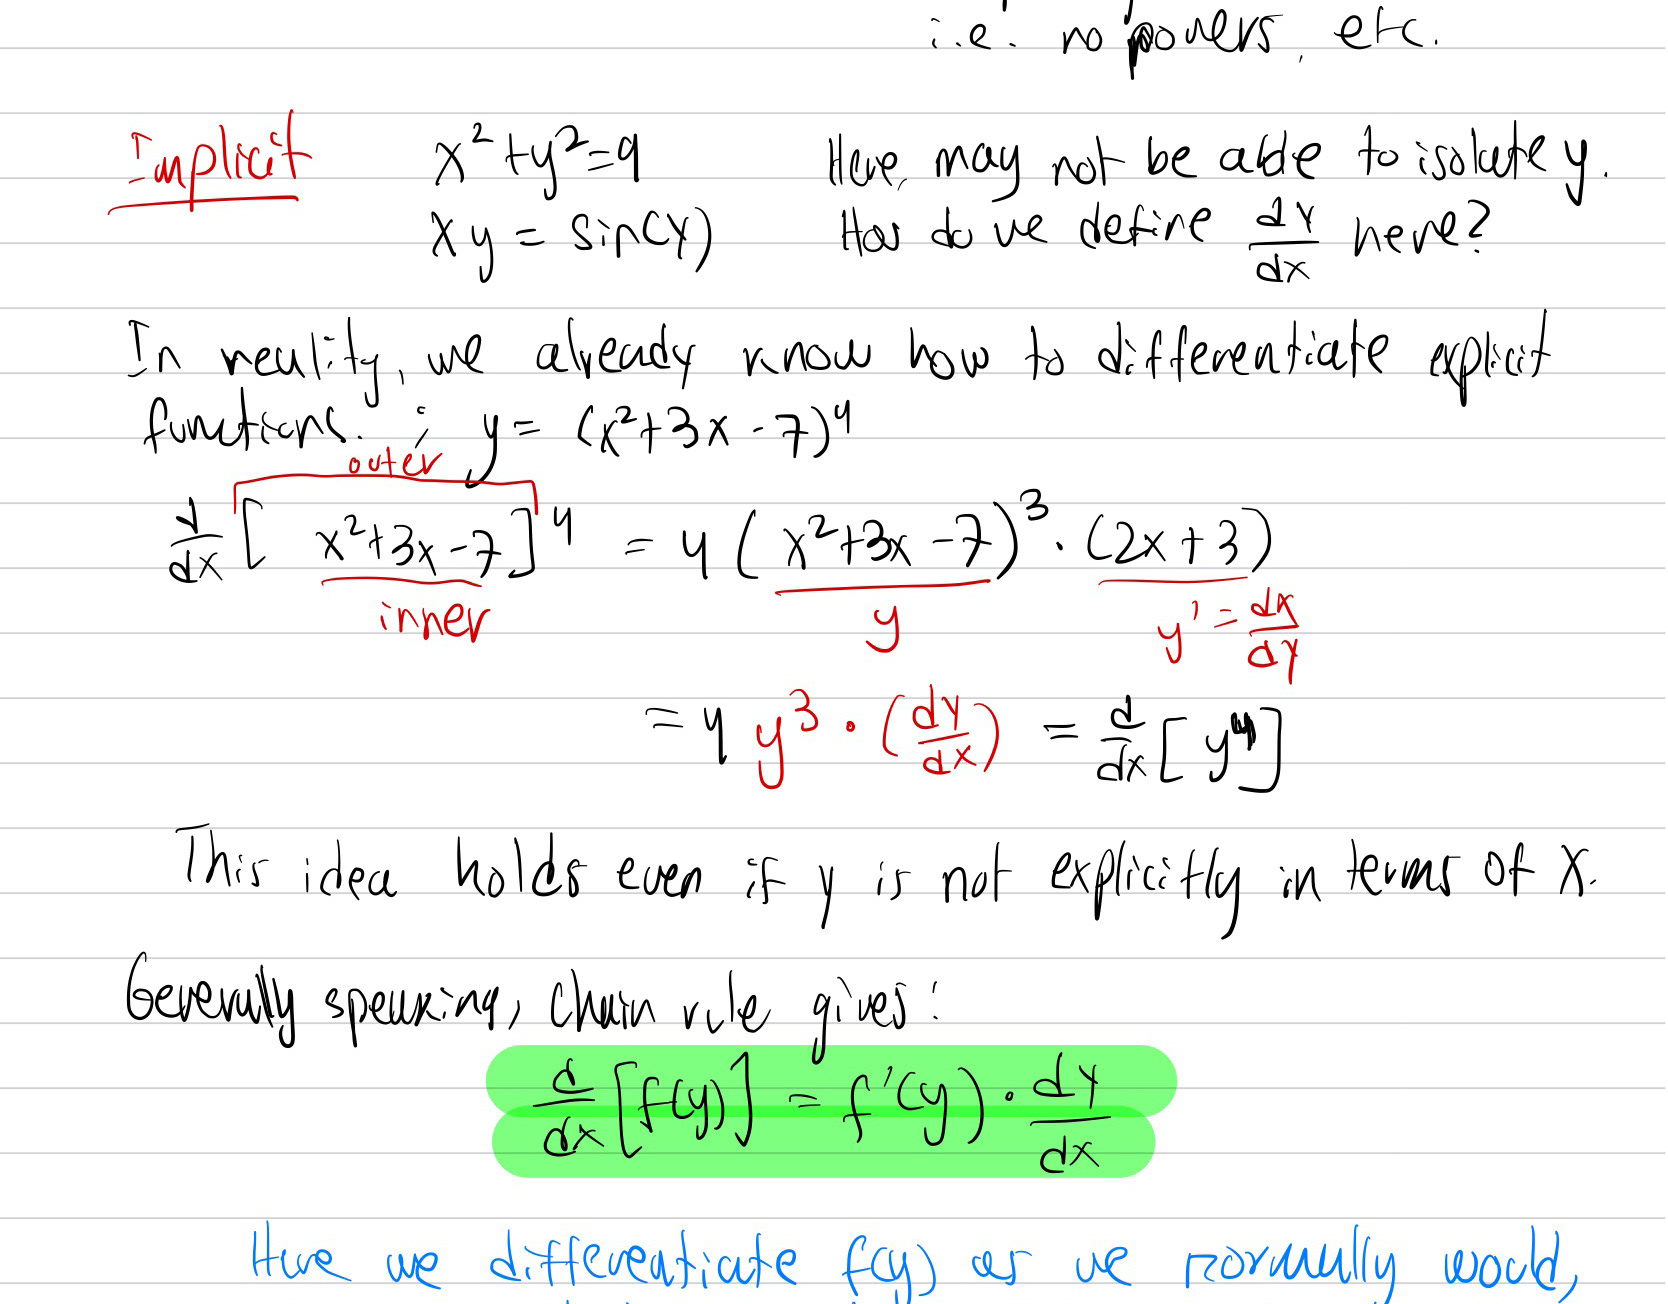 i.e. no powers, etc.
Implicit x²+y²=9 Here, may not be able to isolate y.
xy = sin(y) How do we define dy/dx here?
In reality, we already know how to differentiate explicit
functions. ; y = (x²+3x-7)⁴
outer
d/dx [ x²+3x-7 ]⁴ = 4 ( x²+3x-7)³ · (2x+3)
inner y y' = dx/dy
= 4 y³ · (dy/dx) = d/dx [ y⁴ ]
This idea holds even if y is not explicitly in terms of x.
Generally speaking, chain rule gives:
d/dx [f(y)] = f'(y) · dy/dx
Here we differentiate f(y) as we normally would,